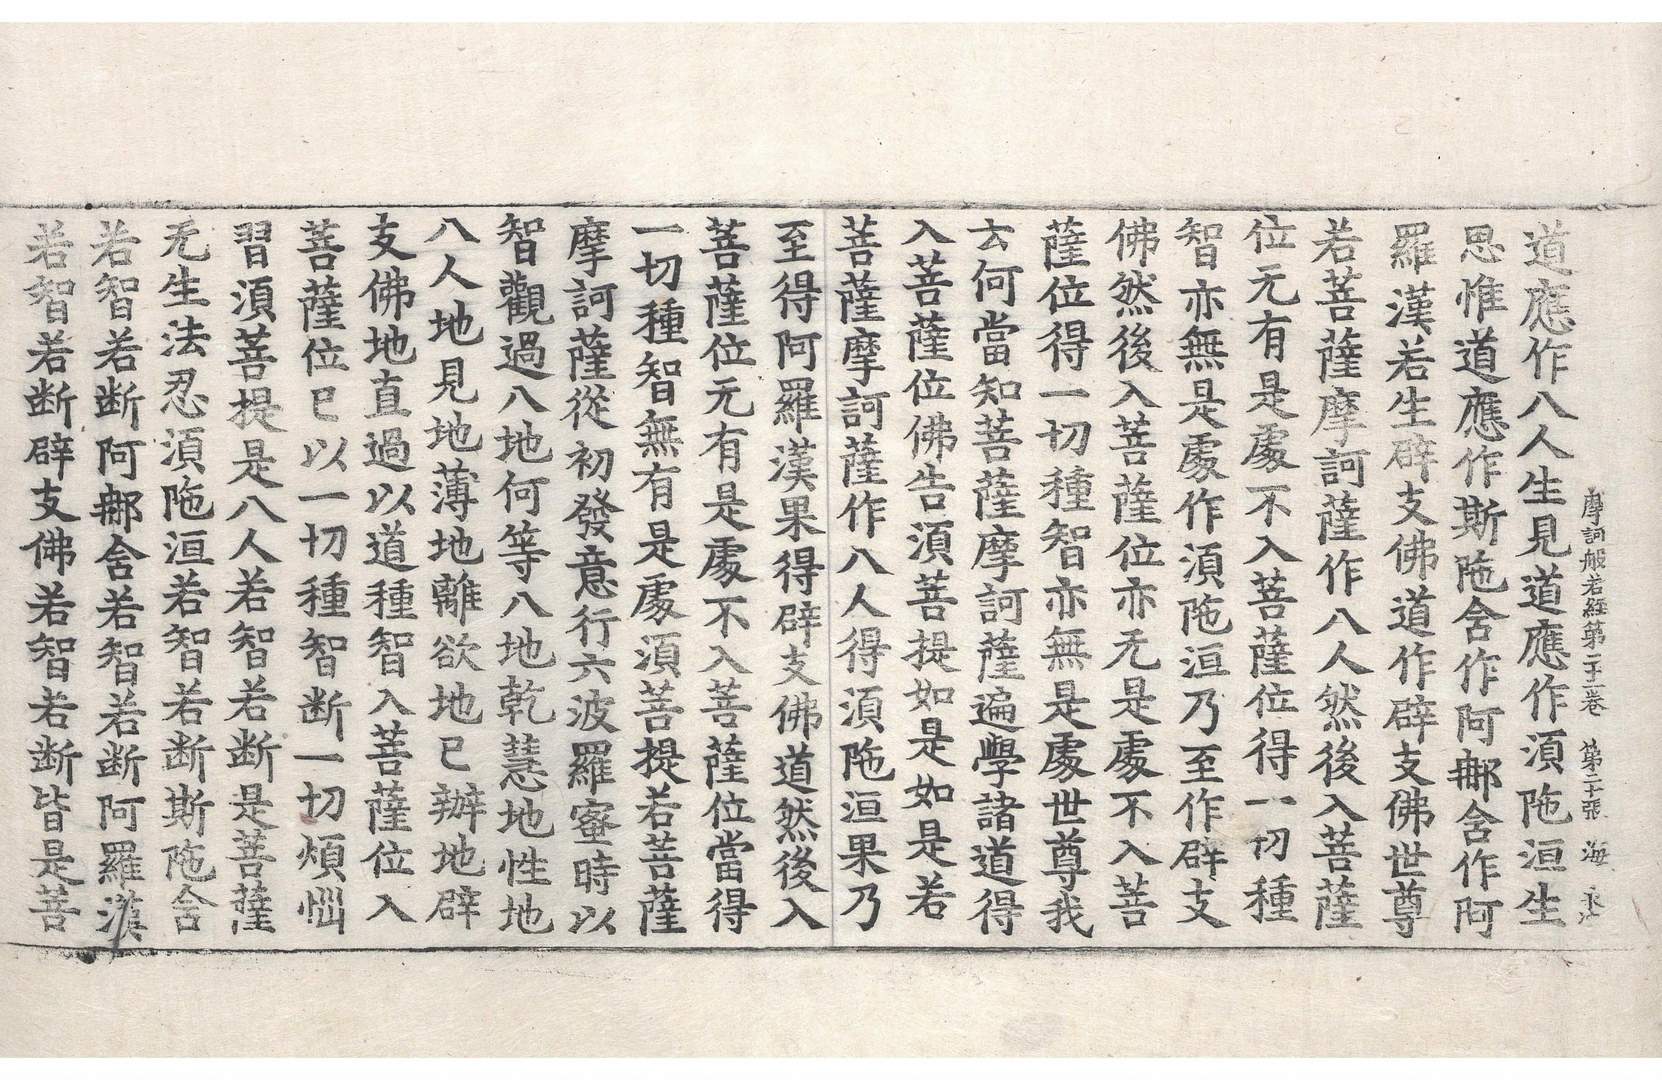 摩訶般若經第二十二卷 第二十張 海
道應作八人生見道應作湏陁洹生
思惟道應作斯陁含作阿郍含作阿
羅漢若生辟支佛道作辟支佛世尊
若菩薩摩訶薩作八人然後入菩薩
位无有是處不入菩薩位得一切種
智亦無是處作湏陁洹乃至作辟支
佛然後入菩薩位亦无是處不入菩
薩位得一切種智亦無是處世尊我
云何當知菩薩摩訶薩遍學諸道得
入菩薩位佛告湏菩提如是如是若
菩薩摩訶薩作八人得湏陁洹果乃
至得阿羅漢果得辟支佛道然後入
菩薩位无有是處不入菩薩位當得
一切種智無有是處湏菩提若菩薩
摩訶薩從初發意行六波羅蜜時以
智觀過八地何等八地乾慧地性地
八人地見地薄地離欲地已辦地辟
支佛地直過以道種智入菩薩位入
菩薩位已以一切種智断一切煩惱
習湏菩提是八人若智若断是菩薩
无生法忍湏陁洹若智若断斯陁含
若智若断阿郍含若智若断阿羅漢
若智若断辟支佛若智若断皆是菩